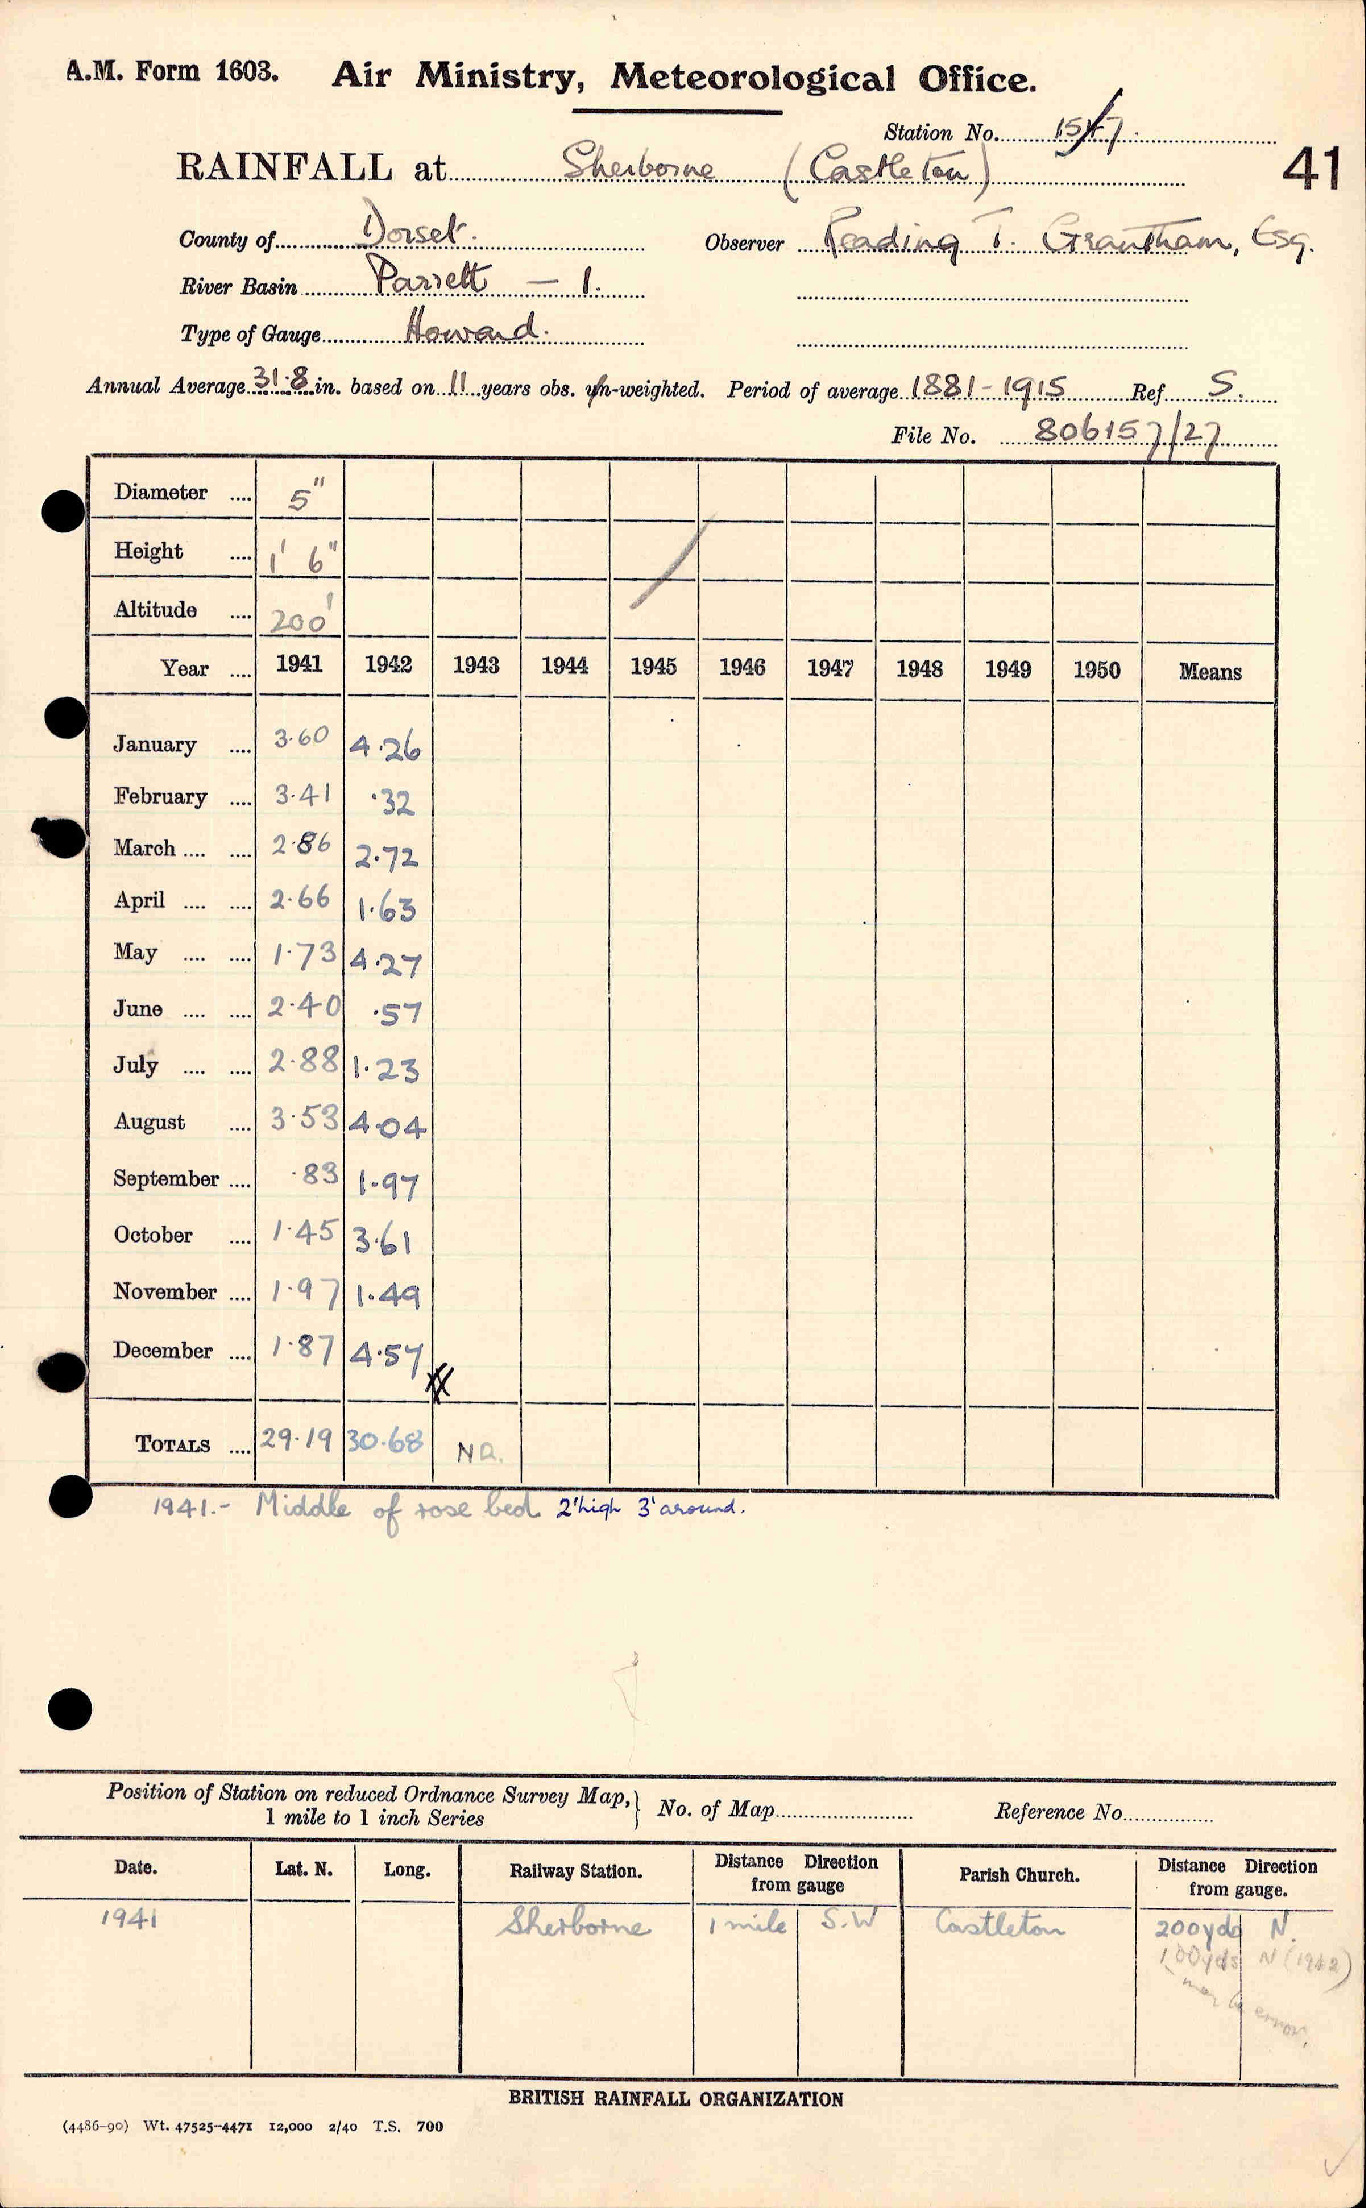 A.M. Form 1603. Air Ministry, Meteorological Office.
Station No. 1547
RAINFALL at Sherborne (Castleton)
41
County of Dorset. Observer Reading T. Grantham, Esq.
River Basin Parrett — 1.
Type of Gauge Howard.
Annual Average 31.8 in. based on 11 years obs. un-weighted. Period of average 1881-1915 Ref S.
File No. 806157/27
Diameter .... 5"
Height .... 1' 6"
Altitude .... 200'
Year .... 1941 1942 1943 1944 1945 1946 1947 1948 1949 1950 Means
January .... 3.60 4.26
February .... 3.41 .32
March .... .... 2.86 2.72
April .... .... 2.66 1.63
May .... .... 1.73 4.27
June .... .... 2.40 .57
July .... .... 2.88 1.23
August .... 3.53 4.04
September .... .83 1.97
October .... 1.45 3.61
November .... 1.97 1.49
December .... 1.87 4.57
TOTALS .... 29.19 30.68 NR.
1941.- Middle of rose bed 2' high 3' around.
Position of Station on reduced Ordnance Survey Map, } No. of Map Reference No
1 mile to 1 inch Series
Date. Lat. N. Long. Railway Station. Distance Direction from gauge Parish Church. Distance Direction from gauge.
1941 Sherborne 1 mile S.W Castleton 200yds N.
100yds N (1942)
may be error.
BRITISH RAINFALL ORGANIZATION
(4486-90) Wt. 47525-4471 12,000 2/40 T.S. 700